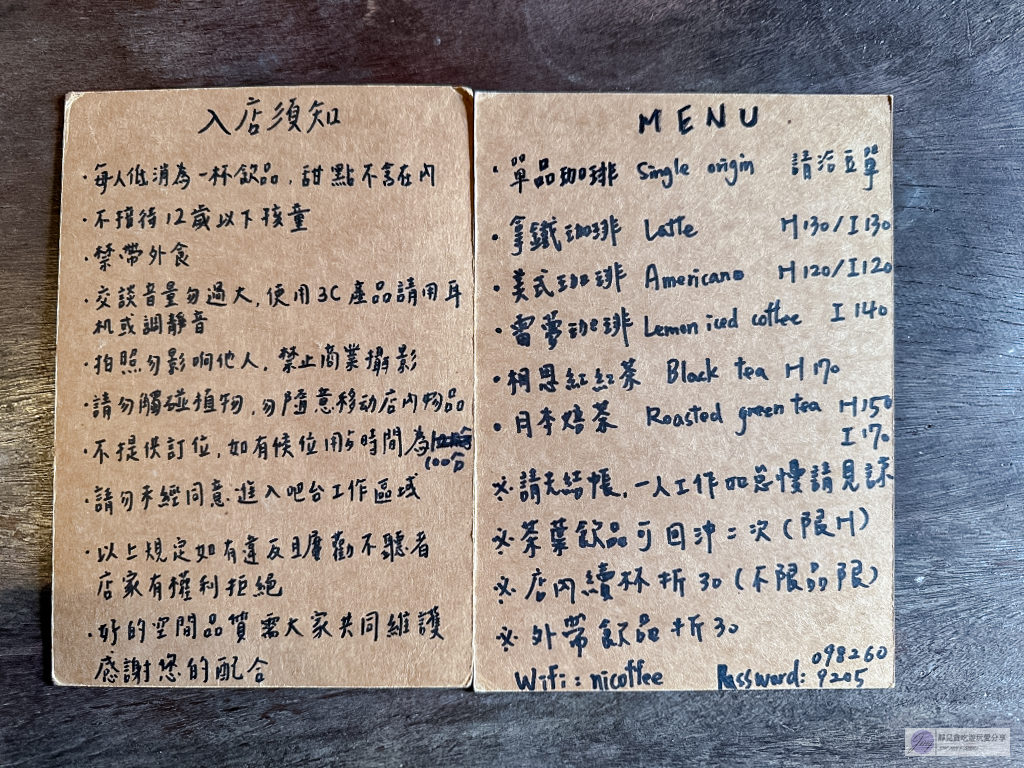 入店須知
・每人低消為一杯飲品，甜點不含在內
・不接待12歲以下孩童
・禁帶外食
・交談音量勿過大，使用3C產品請用耳
机或調靜音
・拍照勿影响他人，禁止商業攝影
・請勿觸碰植物，勿隨意移动店內物品
・不提供訂位，如有候位用歺時間為100分
・請勿未經同意進入吧台工作區域
・以上規定如有違反且屢勸不聽者
店家有權利拒絕
・好的空間品質需大家共同維護
感謝您的配合
MENU
・單品珈琲 Single origin 請洽豆單
・拿鐵珈琲 Latte H130/I130
・美式珈琲 Americano H120/I120
・雷夢珈琲 Lemon iced coffee I140
・柟恩紅紅茶 Black tea H170
・日本焙茶 Roasted green tea H150
I170
※請先結帳，一人工作如怠慢請見諒
※茶葉飲品可回沖二次(限H)
※店內續杯折30(不限品限)
※外帶飲品折30
Wifi: nicoffee Password: 098260
9205
靜兒貪吃遊玩愛分享